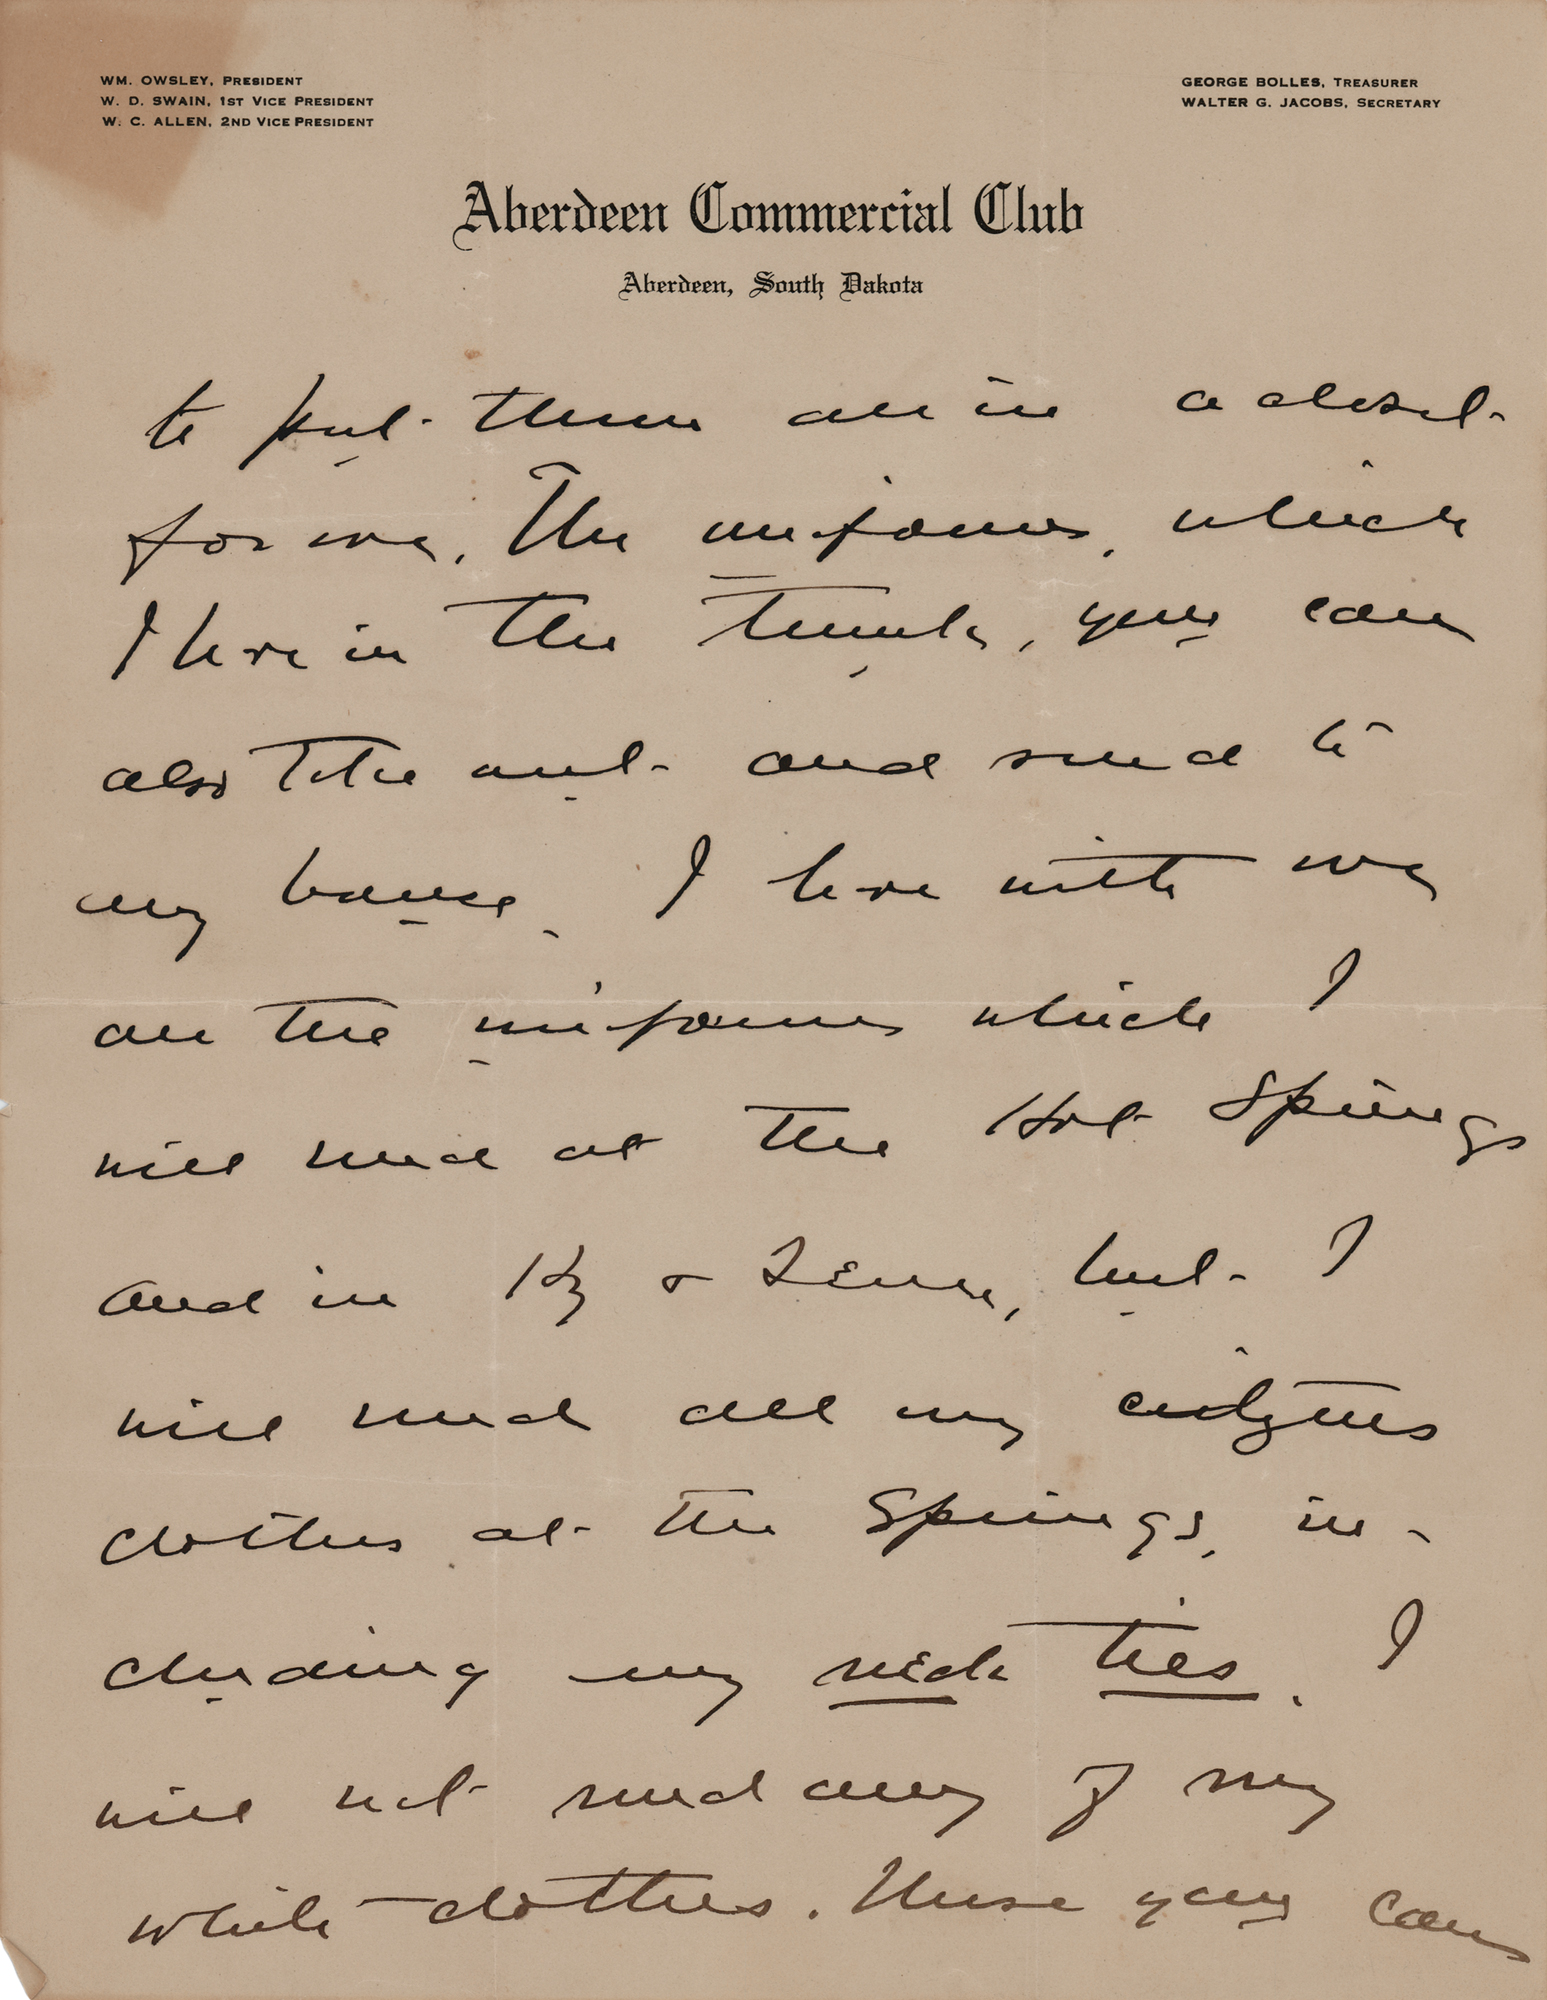 WM. OWSLEY, PRESIDENT
W. D. SWAIN, 1ST VICE PRESIDENT
W. C. ALLEN, 2ND VICE PRESIDENT
GEORGE BOLLES, TREASURER
WALTER G. JACOBS, SECRETARY
Aberdeen Commercial Club
Aberdeen, South Dakota
to put them all in a closet
for me. The uniforms, which
I have in the trunk, you can
also take out and send to
my house. I have with me
all the uniforms which I
will need at the Hot Springs
and in Ky & Tenn, but I
will need all my citizens
clothes at the Springs, in-
cluding my neck ties. I
will not need any of my
white clothes. These you can